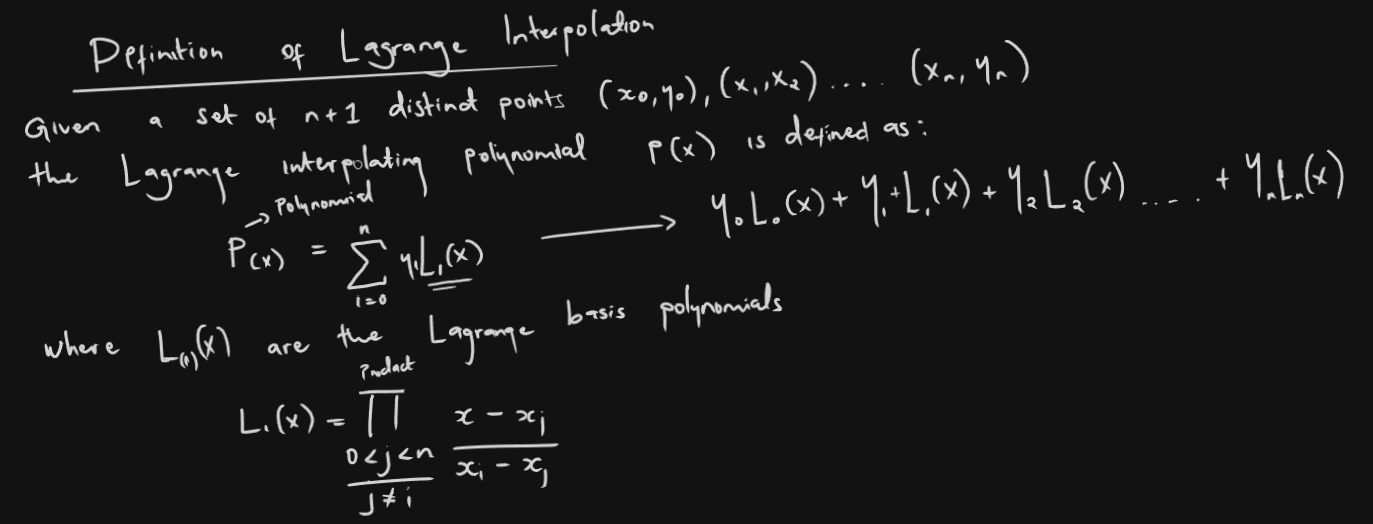 Definition of Lagrange Interpolation
Given a set of n+1 distinct points (x₀,y₀), (x₁,x₂) .... (xₙ, yₙ)
the Lagrange interpolating polynomial P(x) is defined as:
→ Polynomial
P(x) = ∑ⁿᵢ₌₀ yᵢLᵢ(x) ⟶ y₀L₀(x) + y₁+L₁(x) + y₂L₂(x) ..... + yₙLₙ(x)
where L₍ᵢ₎(x) are the Lagrange basis polynomials
Product
Lᵢ(x) = ∏ x - xⱼ
0<j<n xᵢ - xⱼ
J≠i